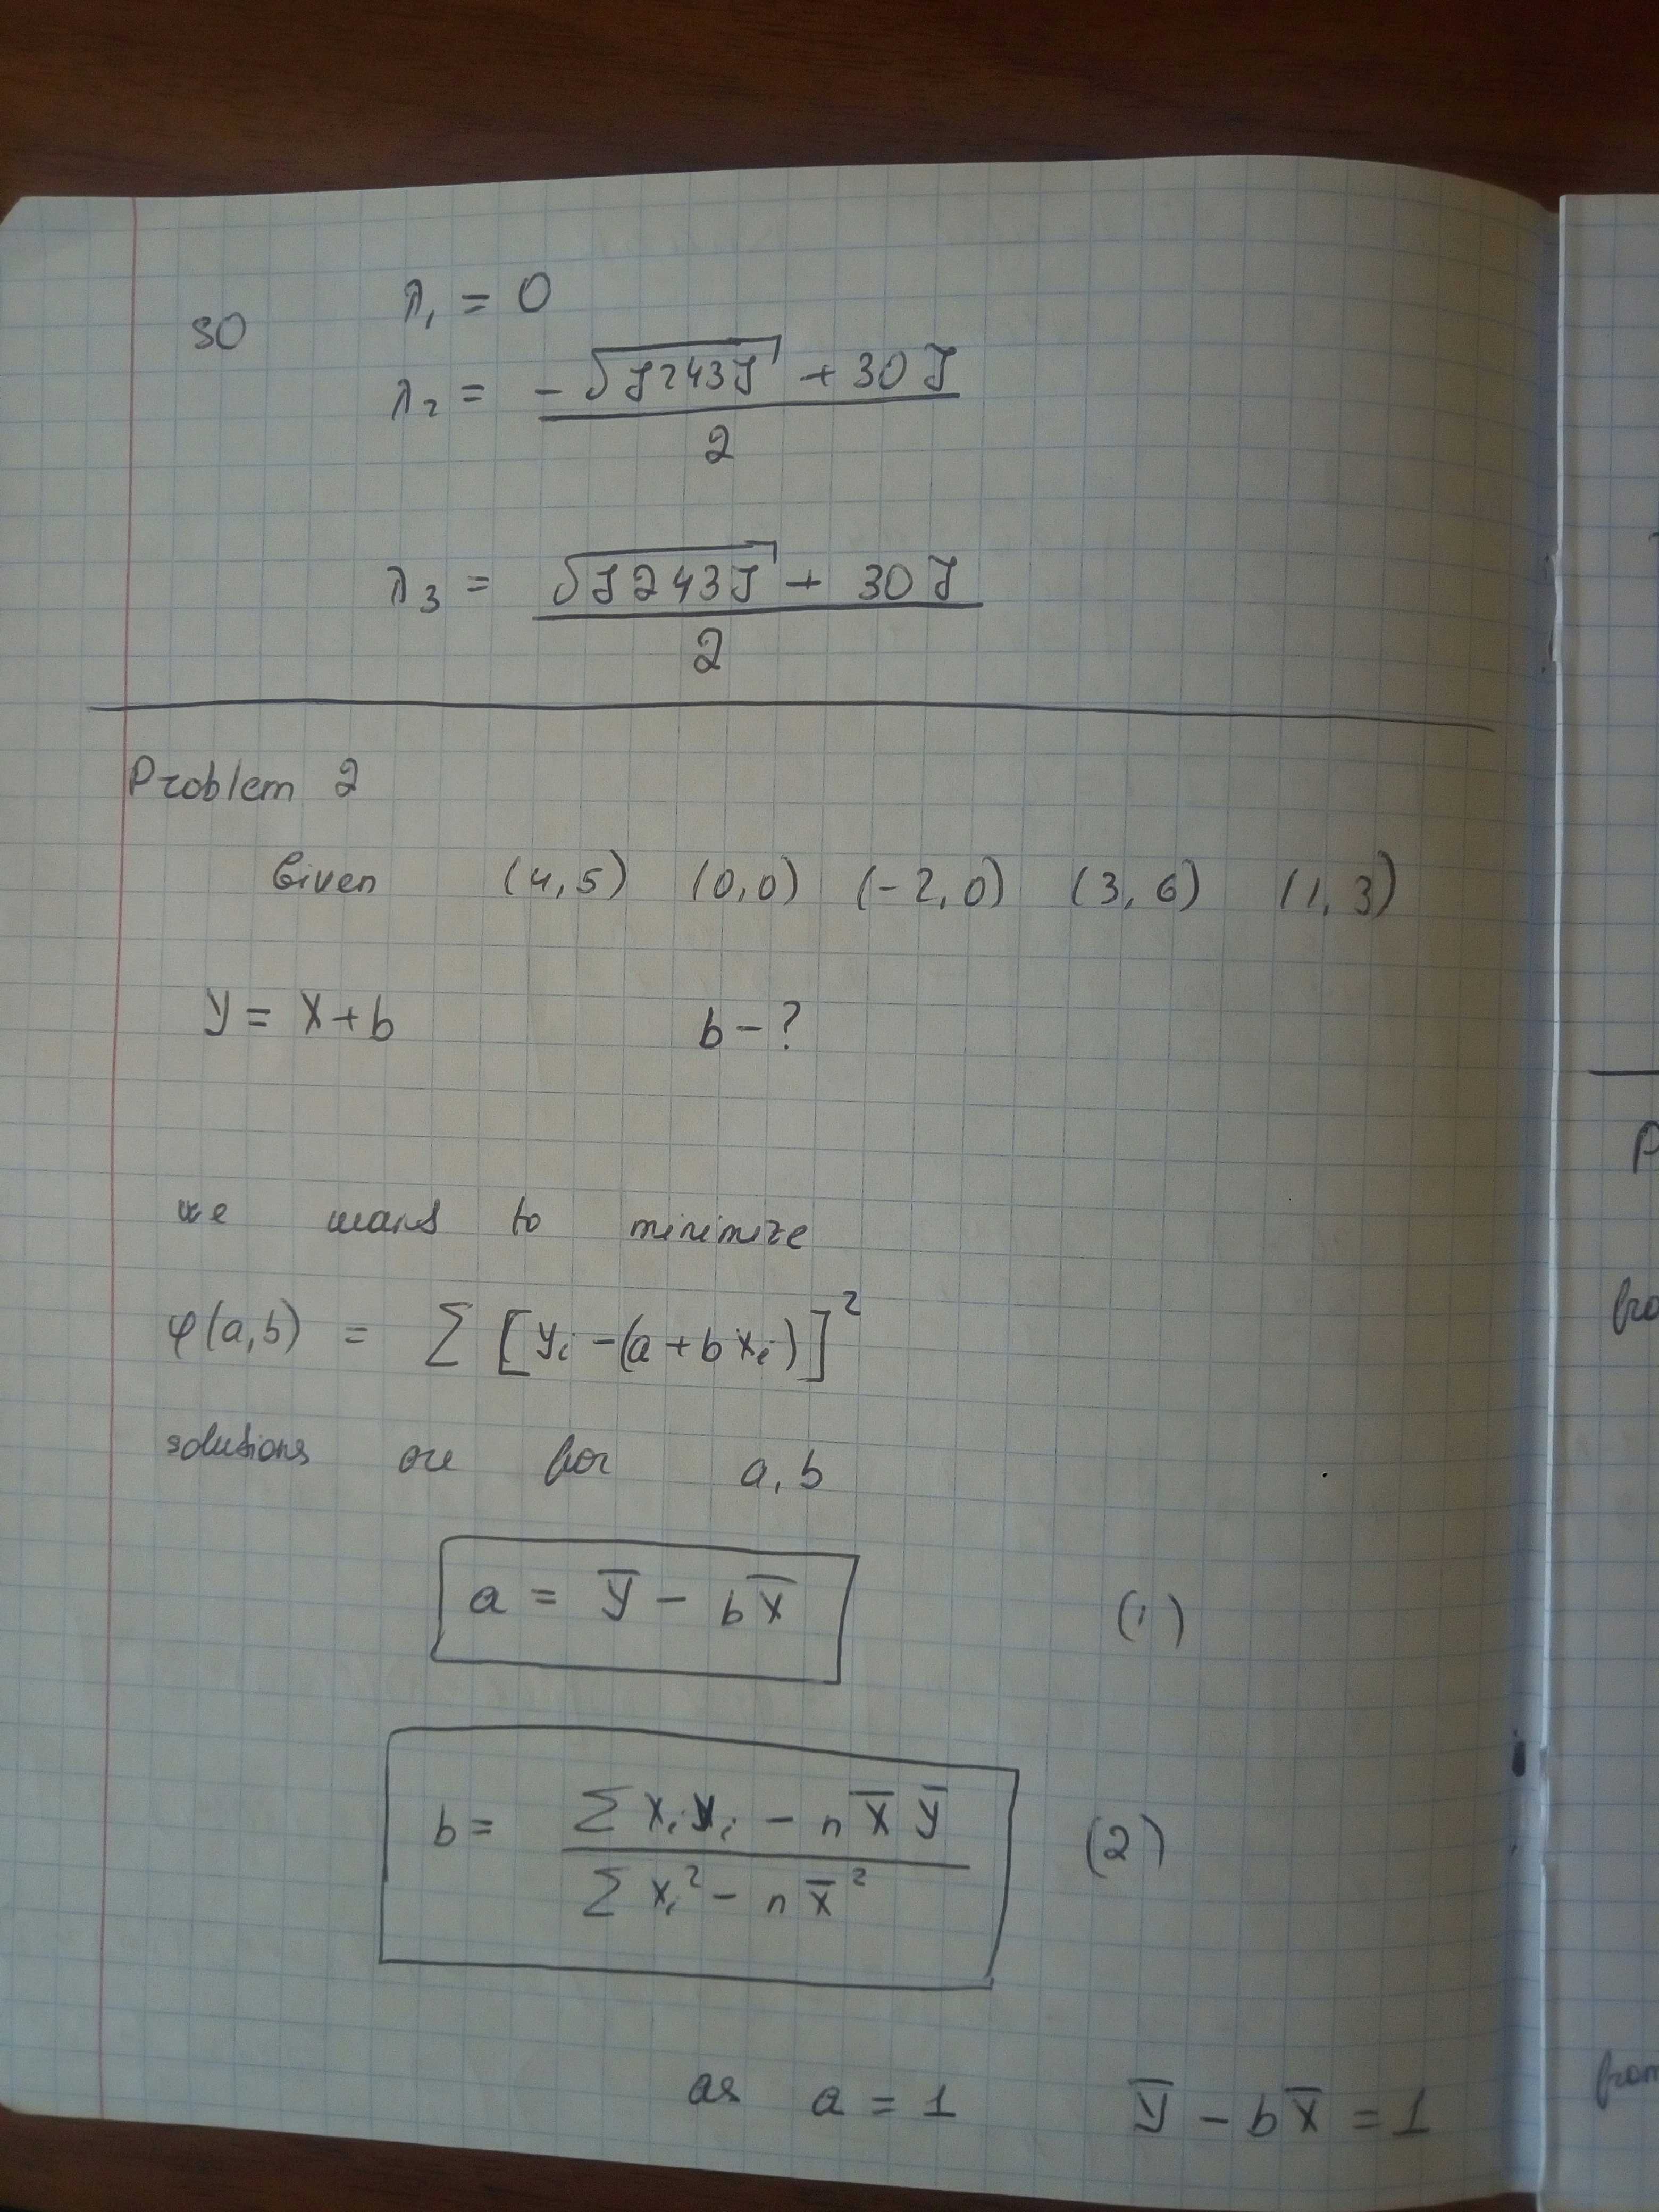 so λ₁ = 0
λ₂ = (-√(12431) + 301) / 2
λ₃ = (√(12431) + 301) / 2
Problem 2
Given (4,5) (0,0) (-2,0) (3,6) (1,3)
y = x+b b-?
we want to minimize
φ(a,b) = Σ [yᵢ -(a+b xᵢ)]²
solutions are for a, b
a = ȳ - b x̄ (1)
b = (Σ xᵢyᵢ - n x̄ ȳ) / (Σ xᵢ² - n x̄²) (2)
as a = 1 ȳ - b x̄ = 1